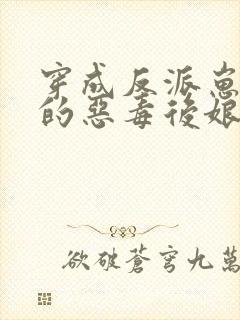 穿成反派崽
的惡毒後娘
欲破蒼穹九萬